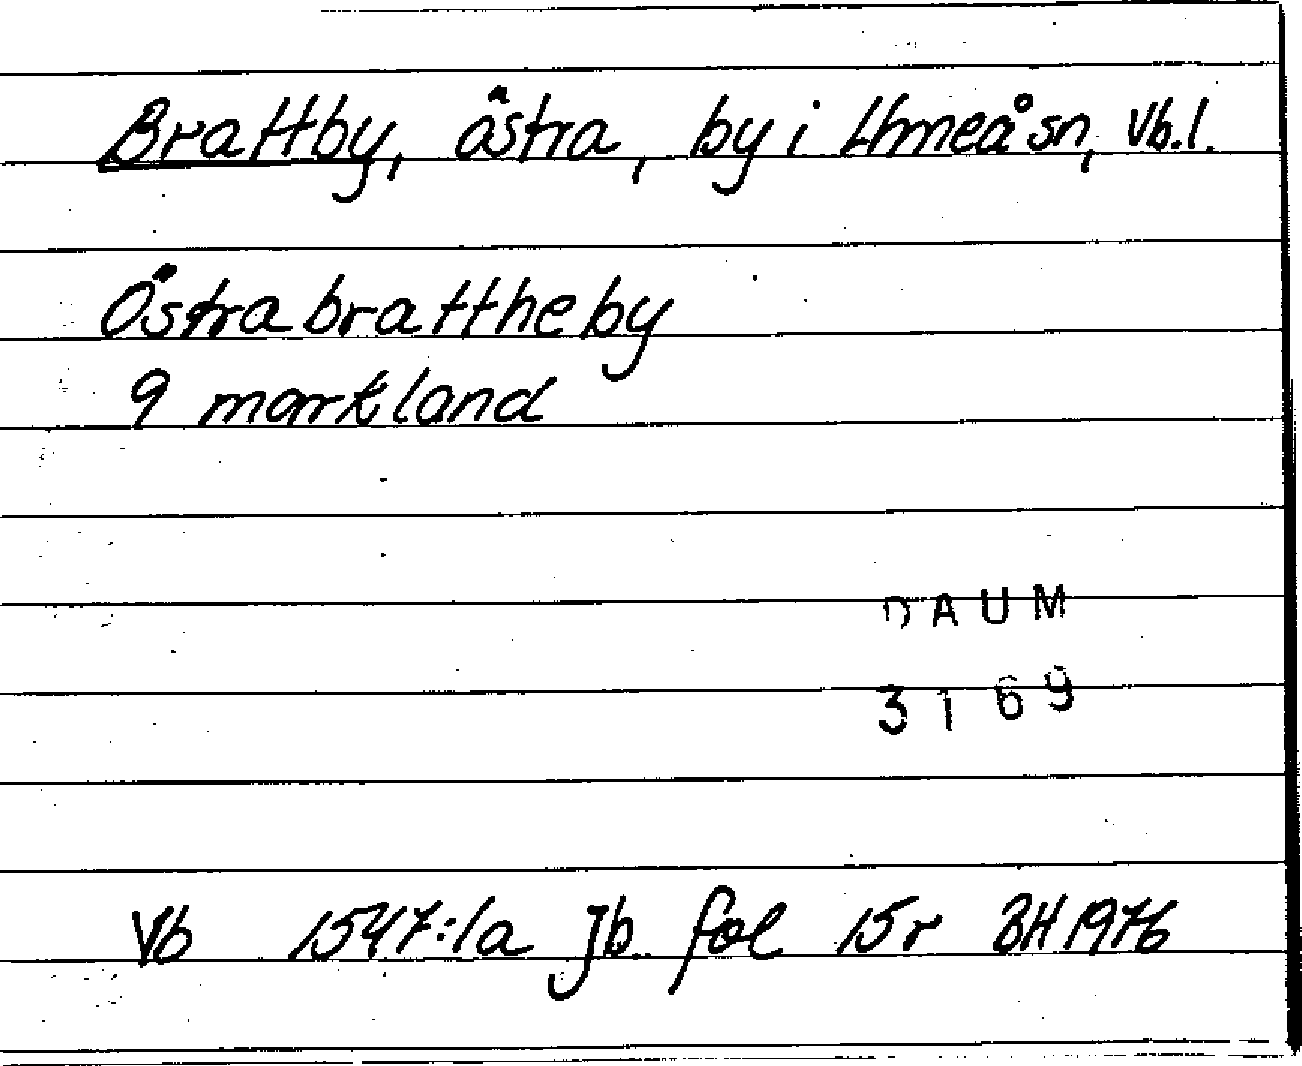 Brattby, östra, by i Umeå sn, Vb.l.
Östra brattheby
9 markland
DAUM
3169
Vb 1547:1a Jb. fol 15r BH 1976